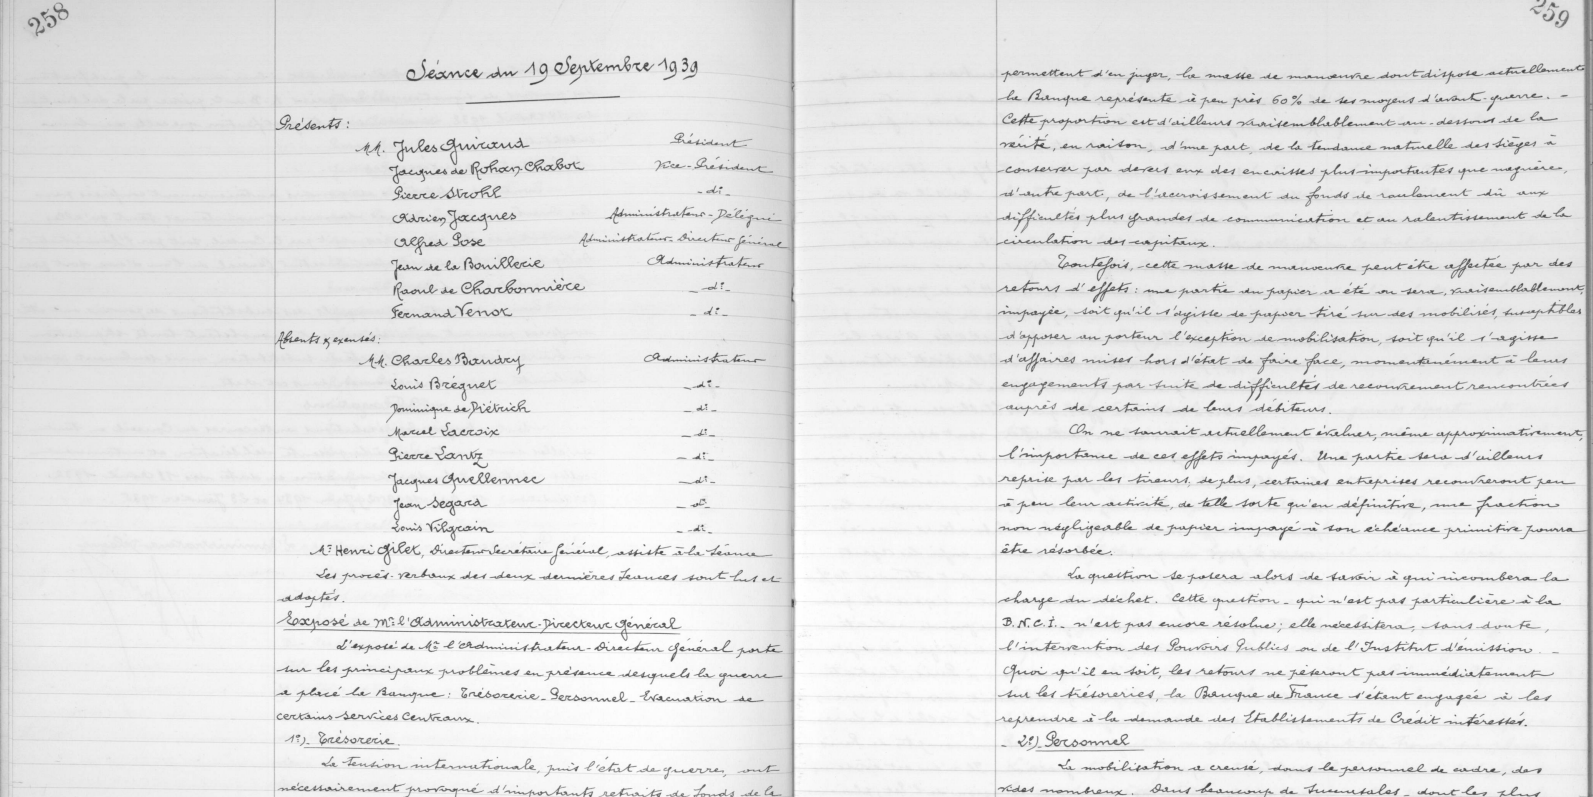 258
Séance du 19 Septembre 1939
Présents :
MM. Jules Guiraud Président
Jacques de Rohan Chabot Vice-Président
Pierre Strohl - d° -
Adrien Jacques Administrateur-Délégué
Alfred Pose Administrateur-Directeur Général
Jean de la Bouillerie Administrateur
Raoul de Charbonnière - d° -
Fernand Venot - d° -
Absents & excusés :
MM. Charles Baudry Administrateur
Louis Bréguet - d° -
Dominique de Diétrich - d° -
Marcel Lacroix - d° -
Pierre Lantz - d° -
Jacques Quellennec - d° -
Jean Segard - d° -
Louis Vilgrain - d° -
Mr Henri Gilet, Directeur Secrétaire Général, assiste à la séance
Les procès-verbaux des deux dernières séances sont lus et
adoptés.
Exposé de Mr l'Administrateur-Directeur Général
L'exposé de Mr l'Administrateur-Directeur Général porte
sur les principaux problèmes en présence desquels la guerre
a placé la Banque : Trésorerie - Personnel - Evacuation de
certains services centraux.
1°)- Trésorerie.
La tension internationale, puis l'état de guerre, ont
nécessairement provoqué d'importants retraits de fonds de la
259
permettent d'en juger, la masse de manœuvre dont dispose actuellement
la Banque représente à peu près 60% de ses moyens d'avant-guerre. -
Cette proportion est d'ailleurs vraisemblablement au-dessous de la
vérité, en raison, d'une part, de la tendance naturelle des sièges à
conserver par devers eux des encaisses plus importantes que naguère,
d'autre part, de l'accroissement du fonds de roulement dû aux
difficultés plus grandes de communication et au ralentissement de la
circulation des capitaux.
Toutefois, cette masse de manœuvre peut être affectée par des
retours d'effets : une partie du papier a été ou sera, vraisemblablement,
impayée, soit qu'il s'agisse de papier tiré sur des mobilisés, susceptibles
d'opposer au porteur l'exception de mobilisation, soit qu'il s'agisse
d'affaires mises hors d'état de faire face, momentanément à leurs
engagements par suite de difficultés de recouvrement rencontrées
auprès de certains de leurs débiteurs.
On ne saurait actuellement évaluer, même approximativement,
l'importance de ces effets impayés. Une partie sera d'ailleurs
reprise par les tireurs, de plus, certaines entreprises recouvreront peu
à peu leur activité, de telle sorte qu'en définitive, une fraction
non négligeable de papier impayé à son échéance primitive pourra
être résorbée.
La question se posera alors de savoir à qui incombera la
charge du déchet. Cette question - qui n'est pas particulière à la
B.N.C.I. - n'est pas encore résolue ; elle nécessitera, sans doute,
l'intervention des Pouvoirs Publics ou de l'Institut d'émission. -
Quoi qu'il en soit, les retours ne pèseront pas immédiatement
sur les trésoreries, la Banque de France s'étant engagée à les
reprendre à la demande des Etablissements de Crédit intéressés.
- 2°) Personnel
La mobilisation a creusé, dans le personnel de cadre, des
vides nombreux. Dans beaucoup de succursales - dont les plus